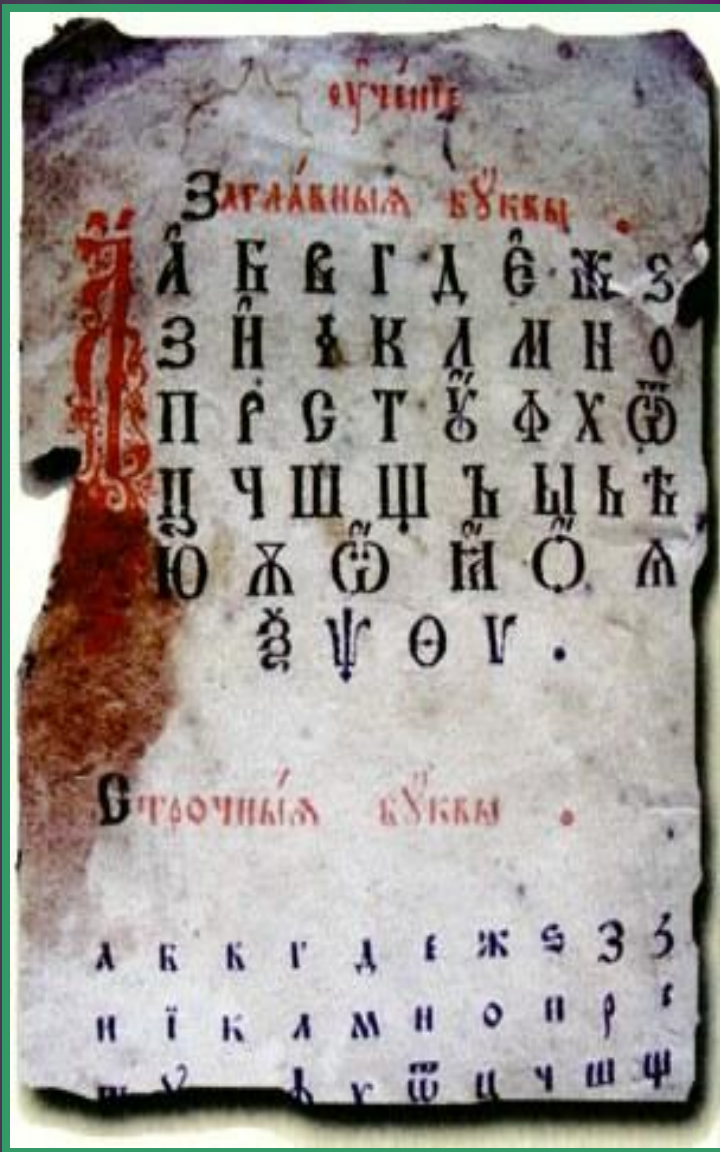 оу҆че́нїе
Загла́вныѧ бу҆́квы .
А҆ Б В Г Д Е҆ Ж Ѕ
З И҆ І К Л М Н О
П Р С Т Ꙋ҆́ Ф Х Ѿ
Ц Ч Ш Щ Ъ Ы Ь Ѣ
Ю҆ Ѫ Ѽ Ꙗ҆ О҆ Ѧ
Ѯ Ѱ Ѳ Ѵ .
Строчны́ѧ бу҆́квы .
а б в г д е ж ѕ З З
и ї к л м н о п р с
т у ф х ѿ ц ч ш щ